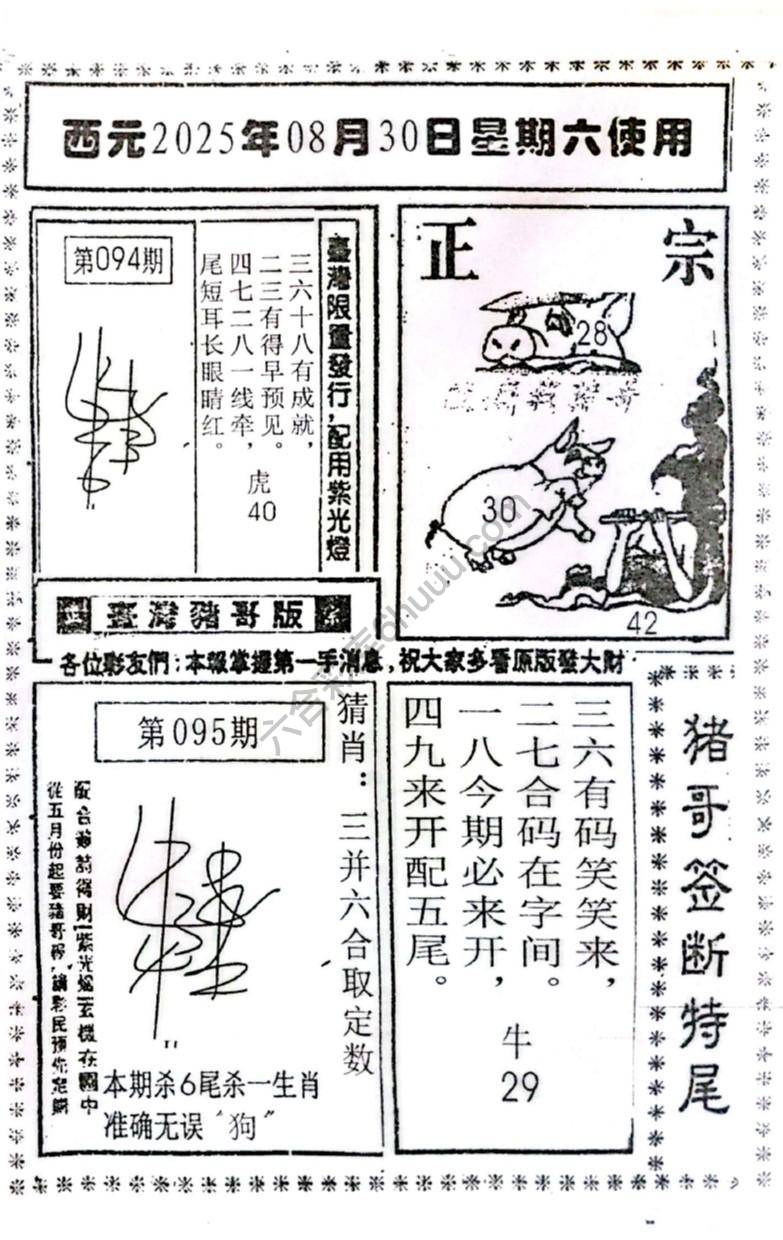 西元2025年08月30日星期六使用
第094期
臺灣限量發行，配用紫光燈
三六十八有成就，
二三有得早预见。
四七二八一线牵，
尾短耳长眼睛红。
虎
40
正宗
28
30
42
臺灣豬哥版
各位彩友們：本報掌握第一手消息，祝大家多看原版發大財
第095期
猜肖：三并六合取定数
從五月份起要豬哥報
本期杀6尾杀一生肖
准确无误“狗”
三六有码笑笑来，
二七合码在字间。
一八今期必来开，
四九来开配五尾。
牛
29
猪哥签断特尾
六合彩库6huuu.com